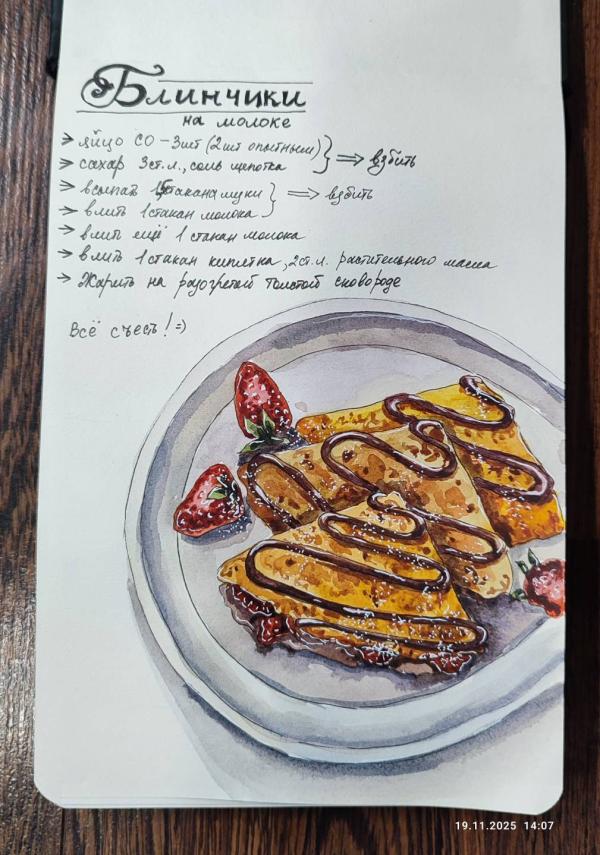 Блинчики
на молоке
→ яйцо СО - 3шт (2шт опытным)
→ сахар 3ст.л., соль щепотка } ⇒ взбить
→ всыпать 1,5 стакана муки } ⇒ взбить
→ влить 1 стакан молока
→ влить ещё 1 стакан молока
→ влить 1 стакан кипятка, 2ст.л. растительного масла
→ Жарить на разогретой толстой сковороде
Всё съесть! =)
19.11.2025 14:07